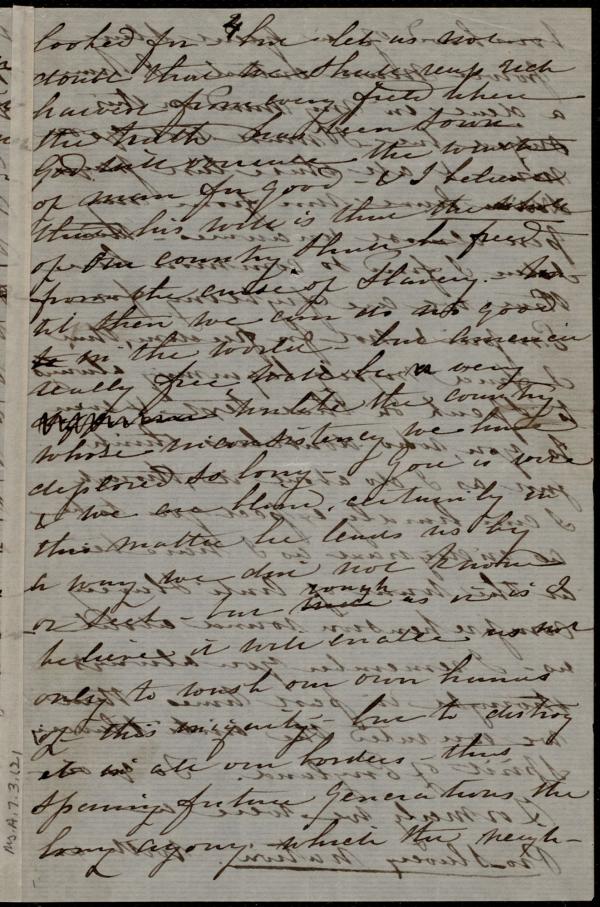 4
looked for but let us not
doubt that we shall reap rich
harvest from every field where
the truth has been sown.
God will overrule the wrath
of man for good & I believe
his will is that
of our country shall be freed
from the curse of Slavery. Un-
til then we can do no good
in the world – but America
really free will be a very
unlike the country
whose inconsistency we have
deplored so long – God is wise
& we are blind. certainly in
this matter he leads us by
a way we did not know
or seek – but rough as it is I
believe it will enable us not
only to wash our own hands
of this iniquity – but to destroy
it in all our borders – thus
sparing future generations the
long agony which the neigh-
Ms.A.7.3.(2)